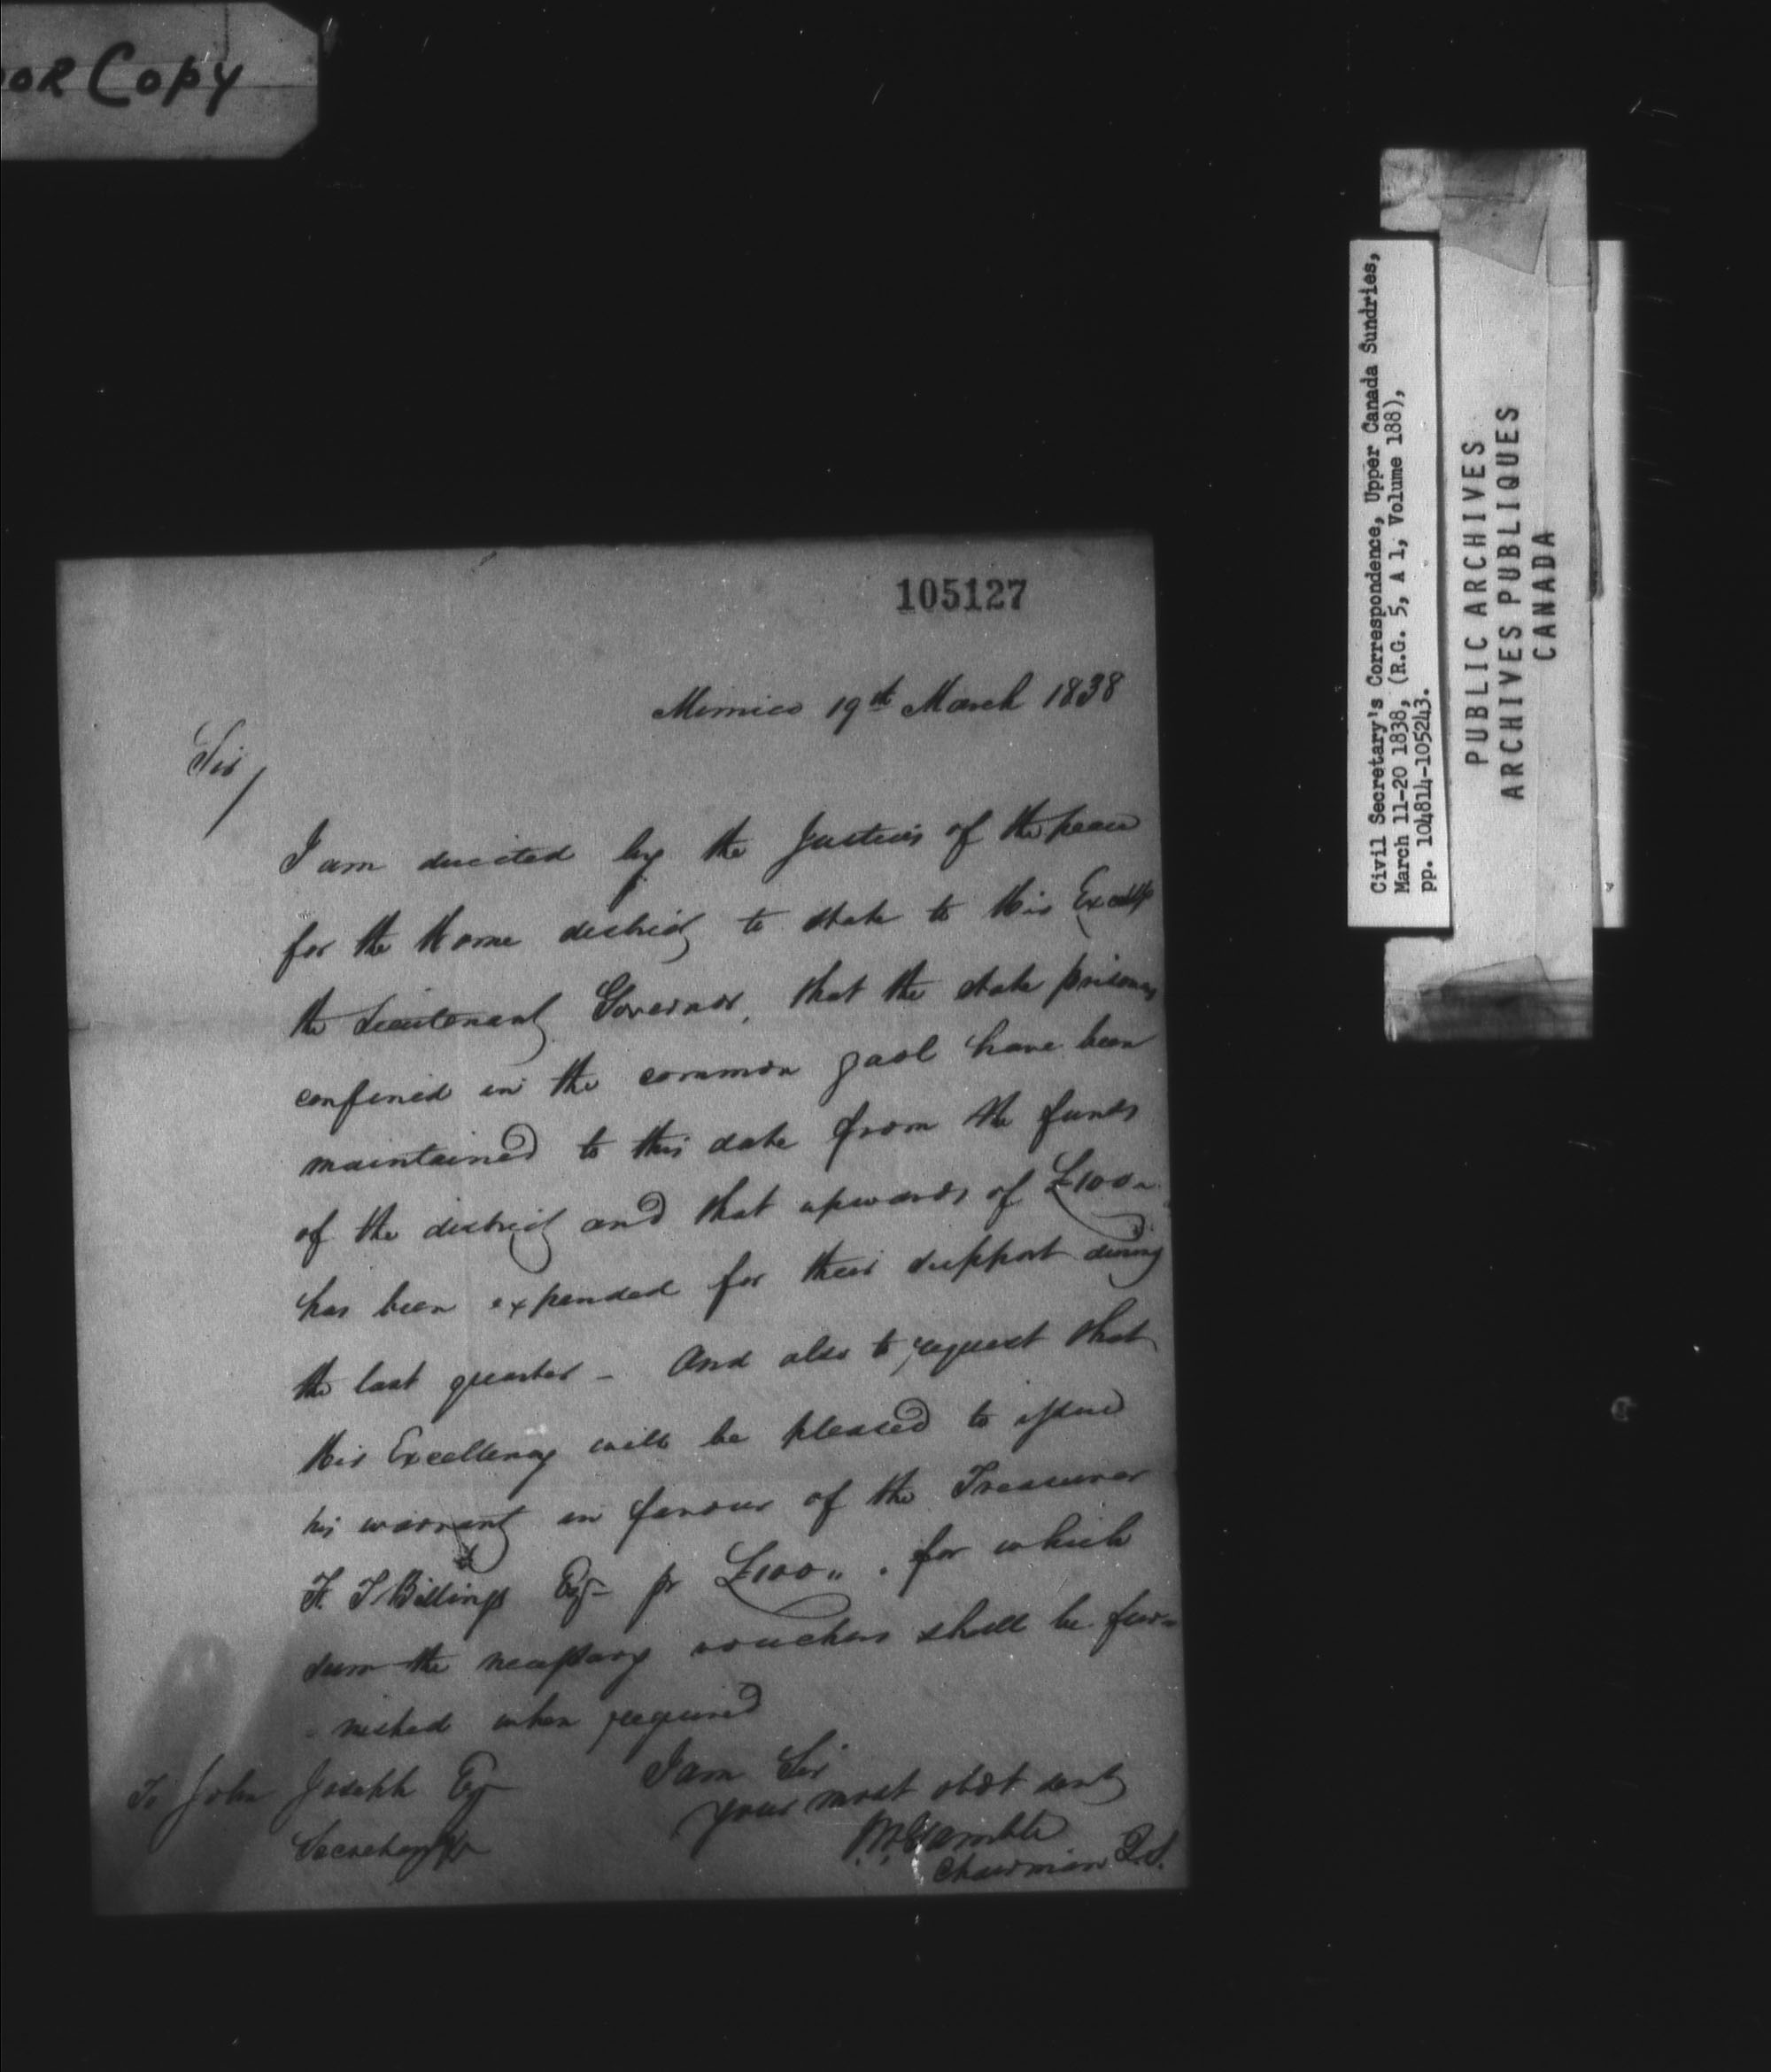 OR Copy
105127
Mimico 19th March 1838
Sir/
I am directed by the Justices of the peace
for the Home district to state to His Excelly
the Lieutenant Governor, that the state prisoners
confined in the common gaol have been
maintained to this date from the funds
of the district and that upwards of £100"
has been expended for their support during
the last quarter - And also to request that
His Excellency will be pleased to issue
his warrant in favour of the Treasurer
F. T Billings Esq- for £100" . for which
sum the necessary vouchers shall be fur-
- nished when required
I am Sir
your most obdt servt
W Gamble
Chairman Q.S.
To John Joseph Esq
Secretary
Civil Secretary's Correspondence, Upper Canada Sundries,
March 11-20 1838, (R.G. 5, A 1, Volume 188),
pp. 104814-105243.
PUBLIC ARCHIVES
ARCHIVES PUBLIQUES
CANADA